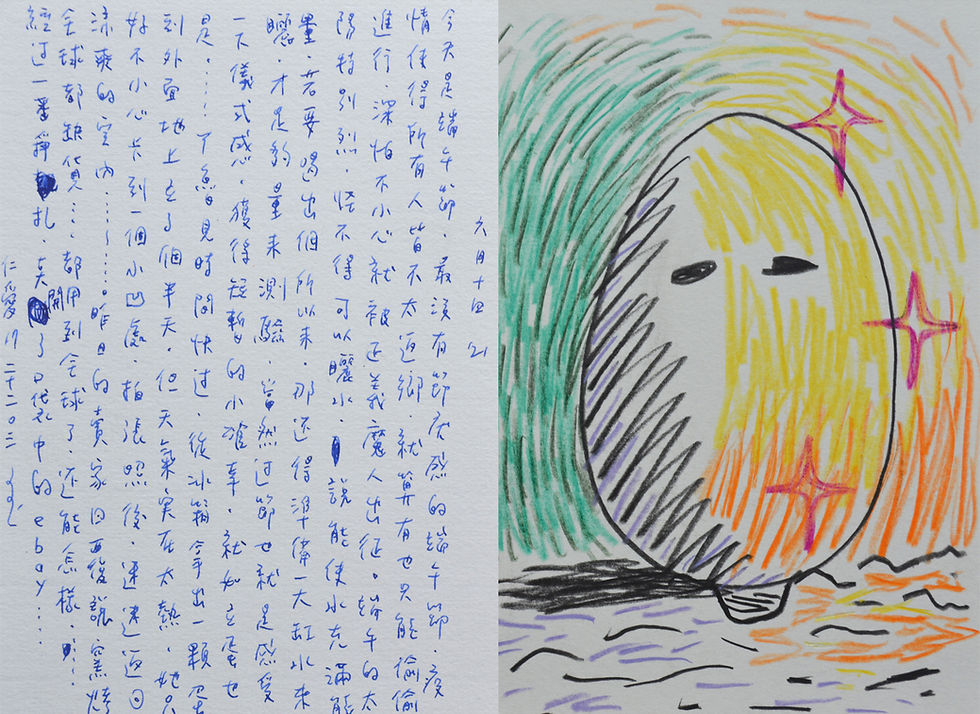 六月十四 21
今天是端午節。最沒有節慶感的端午節。疫
情使得所有人皆不太返鄉。就算有也只能偷偷
進行。深怕不小心就被正義魔人出征。端午的太
陽特別烈。怪不得可以曬水。說能使水充滿能
量。若要喝出個所以來。那還得準備一大缸水來
曬。才足夠量來測驗。當然过節也就是感受
一下儀式感。獲得短暫的小確幸。就如立蛋也
是......了魚見時間快过。從冰箱拿出一顆蛋
到外面地上立了個半天。但天氣実在太熱。她只
好不小心卡到一個小凹處。拍張照後。速速返回
涼爽的室內......~......。昨日的賣家回覆說窯烤
全球都缺貨...都用到全球了。还能怎樣......
經过一番掙扎。点開了口袋中的ebay....
仁愛17 二十二〇三